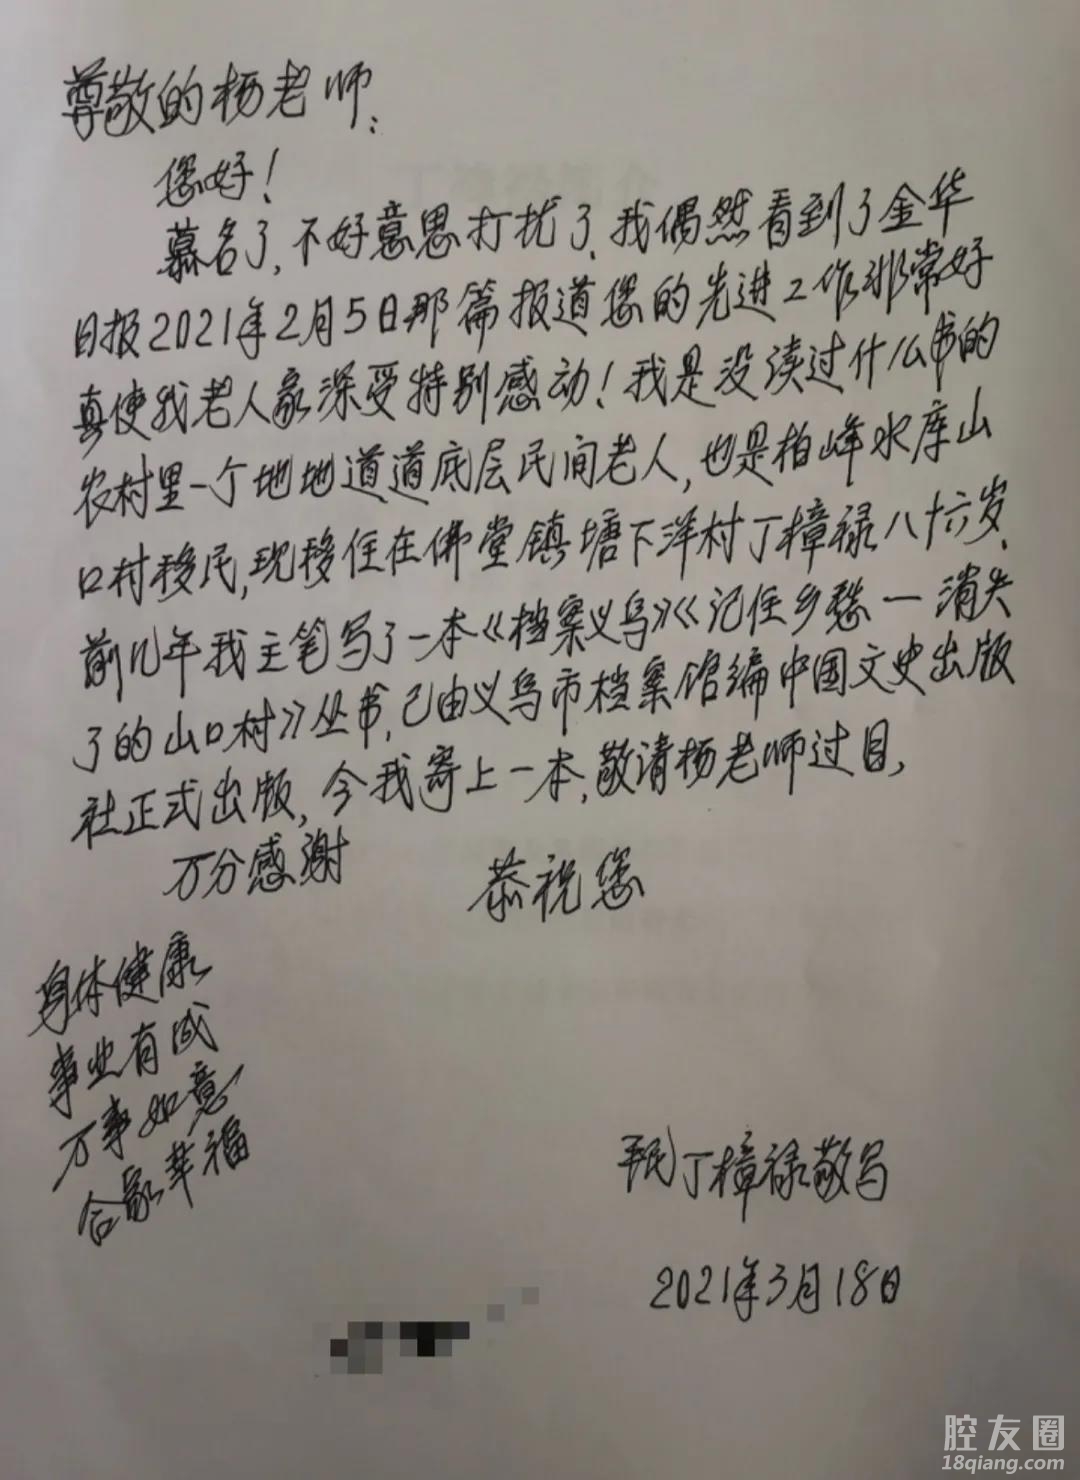 尊敬的杨老师:
您好!
慕名了,不好意思打扰了、我偶然看到了金华
日报2021年2月5日那篇报道您的先进工作非常好
真使我老人家深受特别感动!我是没读过什么书的
农村里一个地地道道底层民间老人,也是柏峰水库山
口村移民,现移住在佛堂镇塘下洋村丁樟禄八十六岁、
前几年我主笔写了一本《档案义乌》《记住乡愁一消失
了的山口村》丛书,已由义乌市档案馆编中国文史出版
社正式出版,今我寄上一本,敬请杨老师过目,
万分感谢
恭祝您
身体健康
事业有成
万事如意
合家幸福
丁樟禄敬写
2021年3月18日
腔友圈
18qiang.com